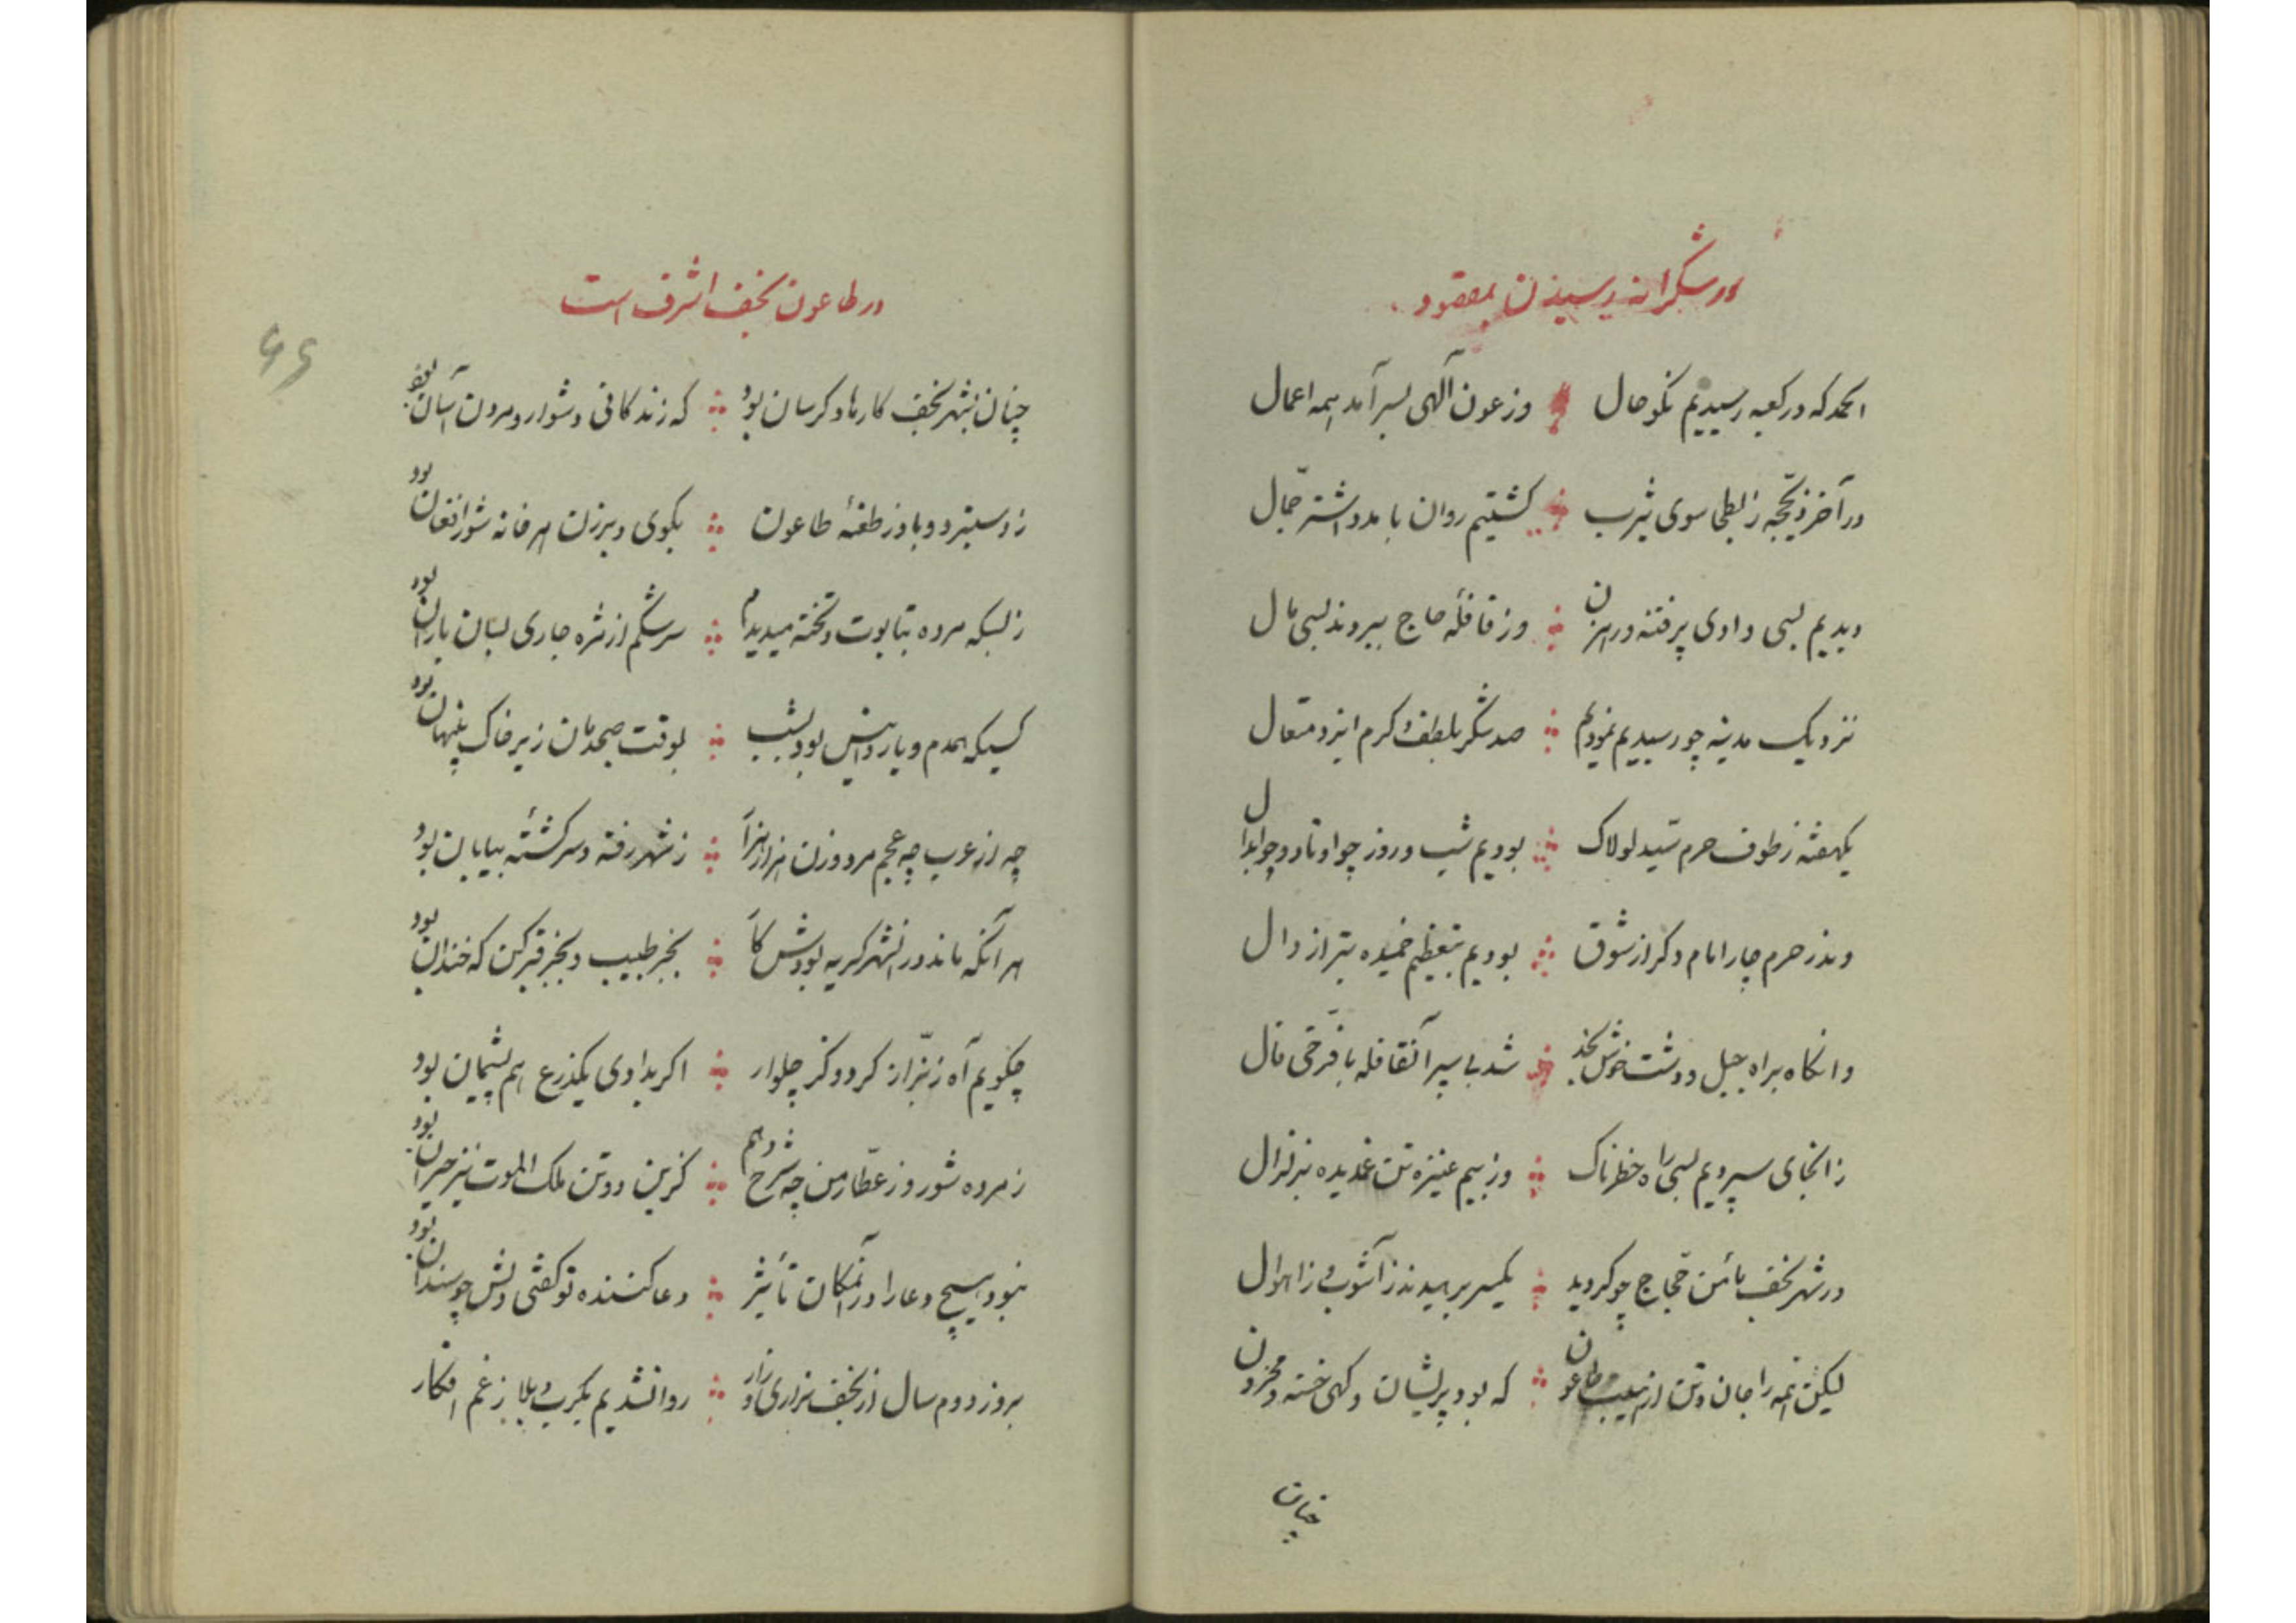 در شکرانه رسیدن بمقصود
الحمد که در کعبه رسیدیم نکو حال وز عون آلهی بسر آمد همه اعمال
در آخر ذیحجه ز بطحا سوی یثرب گشتیم روان با مدد اشتر جمّال
دیدیم بسی وادی پر فتنه و رهزن وز قافلهٔ حاج ببردند بسی مال
نزدیک مدینه چو رسیدیم نمودیم صد شکر بلطف و کرم ایزد متعال
یکهفته ز طوف حرم سیّد لولاک بودیم شب و روز چو اوتاد و چو ابدال
وندر حرم چار امام دگر از شوق بودیم بتعظیم خمیده بتر از دال
وانگاه براه جبل و دشت خوش نجد شد پی سپر آنقافله با فرّخی فال
زانجای سپردیم بسی راه خطرناک وز بیم عنیزه تن غمدیده بزلزال
در شهر نجف مأمن حجّاج چو گردید یکسر برهیدند ز آشوب و ز اهوال
لیکن همه را جان و تن از نهیب طاعون که بود پریشان و گهی خسته و محزون
چنان
در طاعون نجف اشرف است
چنان بشهر نجف کارها دگرسان بود که زندگانی دشوار و مردن آسان بود
ز دستبرد وبا وز طعنهٔ طاعون بکوی و برزن هر خانه شور و افغان بود
ز بسکه مرده بتابوت و تخته میدیدم سرشکم از مژه جاری بسان باران بود
کسیکه همدم و یار و انیس بود بشب بوقت صبحدمان زیر خاک پنهان بود
چه از عرب چه عجم مرد و زن هزار هزار ز شهر رفته و سرگشتهٔ بیابان بود
هر آنکه ماند در آنشهر گریه بودش کار بجز طبیب و بجز قبرکن که خندان بود
چگویم آه ز بزّاز کرد و کز چلوار اگر بدادی یکذرع هم پشیمان بود
ز مرده شور و ز عطّار من چه شرح دهم کزین دو تن ملک الموت نیز حیران بود
نبود هیچ دعا را در آنمکان تأثیر دعا کننده تو گفتی دلش چو سندان بود
بروز دوم سال از نجف بزاری و زار روانشدیم بکرب و بلا ز غم افکار